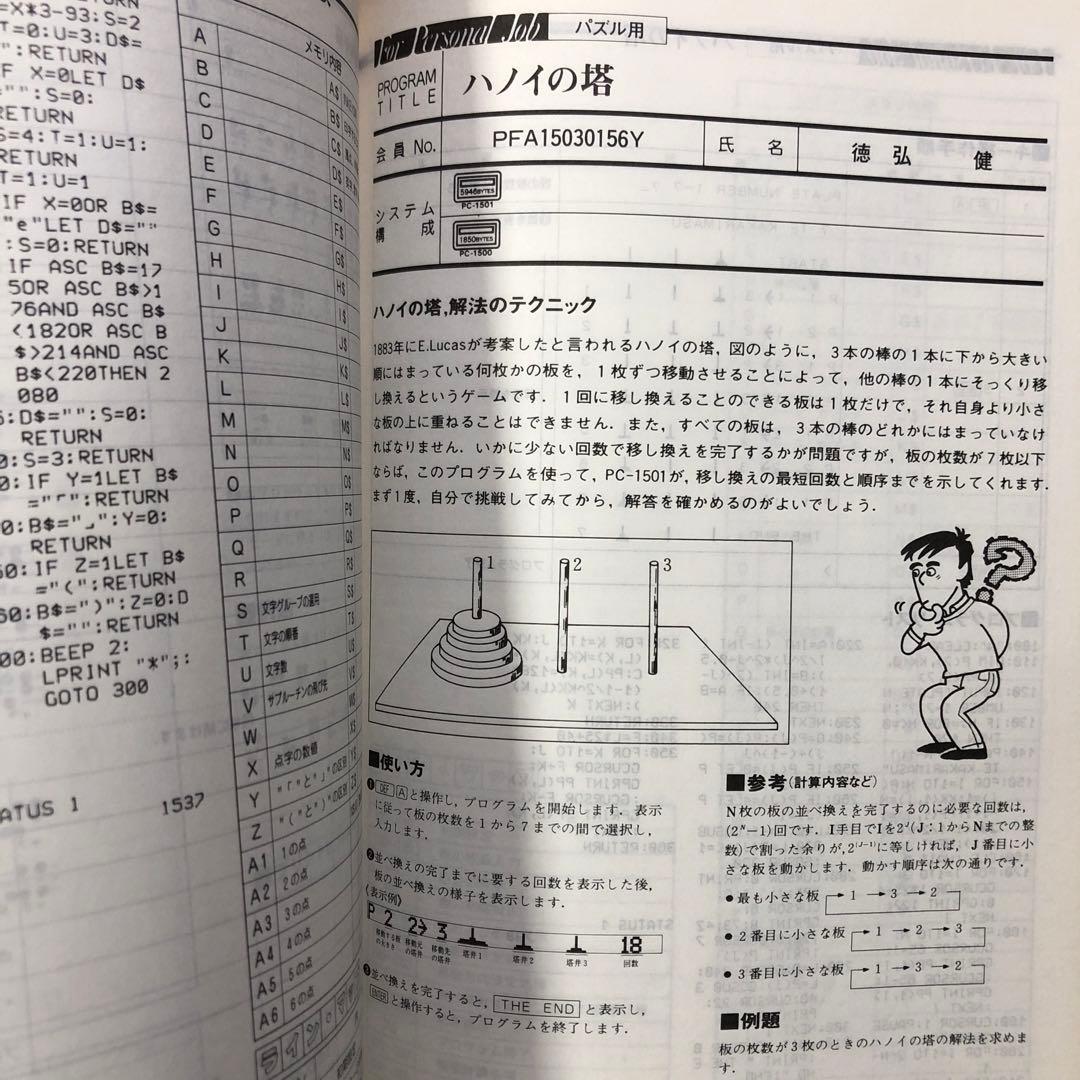 =X*3-93:S=2
T=0:U=3:D$=
"":RETURN
IF X=0LET D$
="":S=0:
RETURN
S=4:T=1:U=1:
RETURN
T=1:U=1
IF X=0OR B$=
"e"LET D$=""
:S=0:RETURN
IF ASC B$=17
5OR ASC B$>1
76AND ASC B$
<182OR ASC B
$>214AND ASC
B$<220THEN 2
080
:D$="":S=0:
RETURN
0:S=3:RETURN
0:IF Y=1LET B$
="「":RETURN
0:B$="」":Y=0:
RETURN
50:IF Z=1LET B$
="(":RETURN
60:B$=")":Z=0:D
$="":RETURN
00:BEEP 2:
LPRINT "*";:
GOTO 300
ATUS 1 1537
メモリ内容
A A$
B B$
C C$
D D$
E E$
F F$
G G$
H H$
I I$
J J$
K K$
L L$
M M$
N N$
O O$
P P$
Q Q$
R R$
S 文字グループの運用 S$
T 文字の順番 T$
U 文字数 U$
V サブルーチンの飛び先 V$
W W$
X 点字の数値 X$
Y "「"と"」"の区別 Y$
Z "("と")"の区別 Z$
A1 1の点
A2 2の点
A3 3の点
A4 4の点
A5 5の点
A6 6の点
For Personal Job パズル用
PROGRAM TITLE ハノイの塔
会員 No. PFA15030156Y 氏名 徳弘 健
システム構成
5946BYTES
PC-1501
1850BYTES
PC-1500
ハノイの塔,解法のテクニック
1883年にE.Lucasが考案したと言われるハノイの塔,図のように,3本の棒の1本に下から大きい
順にはまっている何枚かの板を,1枚ずつ移動させることによって,他の棒の1本にそっくり移
し換えるというゲームです.1回に移し換えることのできる板は1枚だけで,それ自身より小さ
な板の上に重ねることはできません.また,すべての板は,3本の棒のどれかにはまっていなけ
ればなりません.いかに少ない回数で移し換えを完了するかが問題ですが,板の枚数が7枚以下
ならば,このプログラムを使って,PC-1501が,移し換えの最短回数と順序までを示してくれます.
まず1度,自分で挑戦してみてから,解答を確かめるのがよいでしょう.
1 2 3
■使い方
❶DEF Aと操作し,プログラムを開始します.表示
に従って板の枚数を1から7までの間で選択し,
入力します.
❷並べ換えの完了までに要する回数を表示した後,
板の並べ換えの様子を表示します.
〈表示例〉
P 2 2→3 18
移動する板の大きさ 移動元の塔井 移動先の塔井 塔井1 塔井2 塔井3 回数
❸並べ換えを完了すると,THE ENDと表示し,
ENTERと操作すると,プログラムを終了します.
■参考(計算内容など)
N枚の板の並べ換えを完了するのに必要な回数は,
(2ᴺ−1)回です.I手目でIを2ᴶ(J:1からNまでの整
数)で割った余りが,2⁽ᴶ⁻¹⁾に等しければ,J番目に小
さな板を動かします.動かす順序は次の通りです.
●最も小さな板 →1 →3 →2
●2番目に小さな板 →1 →2 →3
●3番目に小さな板 →1 →3 →2
■例題
板の枚数が3枚のときのハノイの塔の解法を求めま
す.